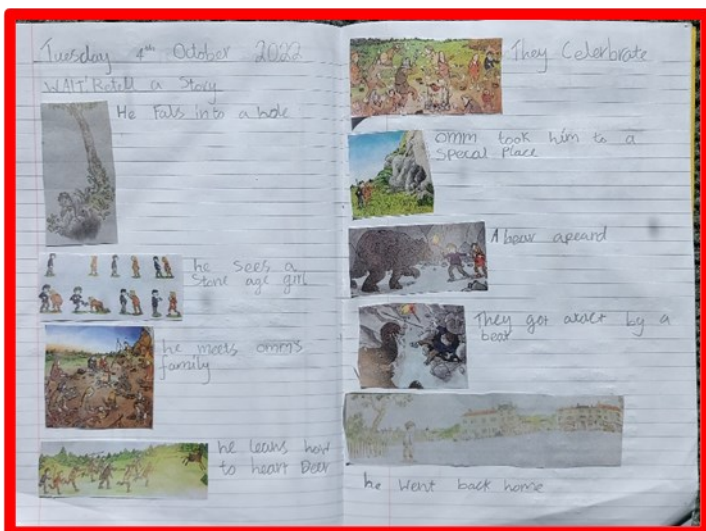 Tuesday 4th October 2022
WALT: Retell a Story
He Falls into a hole
he sees a
Stone age girl
he meets omm's
family
he leans how
to heart Deer
They Celerbrate
omm took him to a
specal Place
A bear apeard
They got by a
bear
he went back home